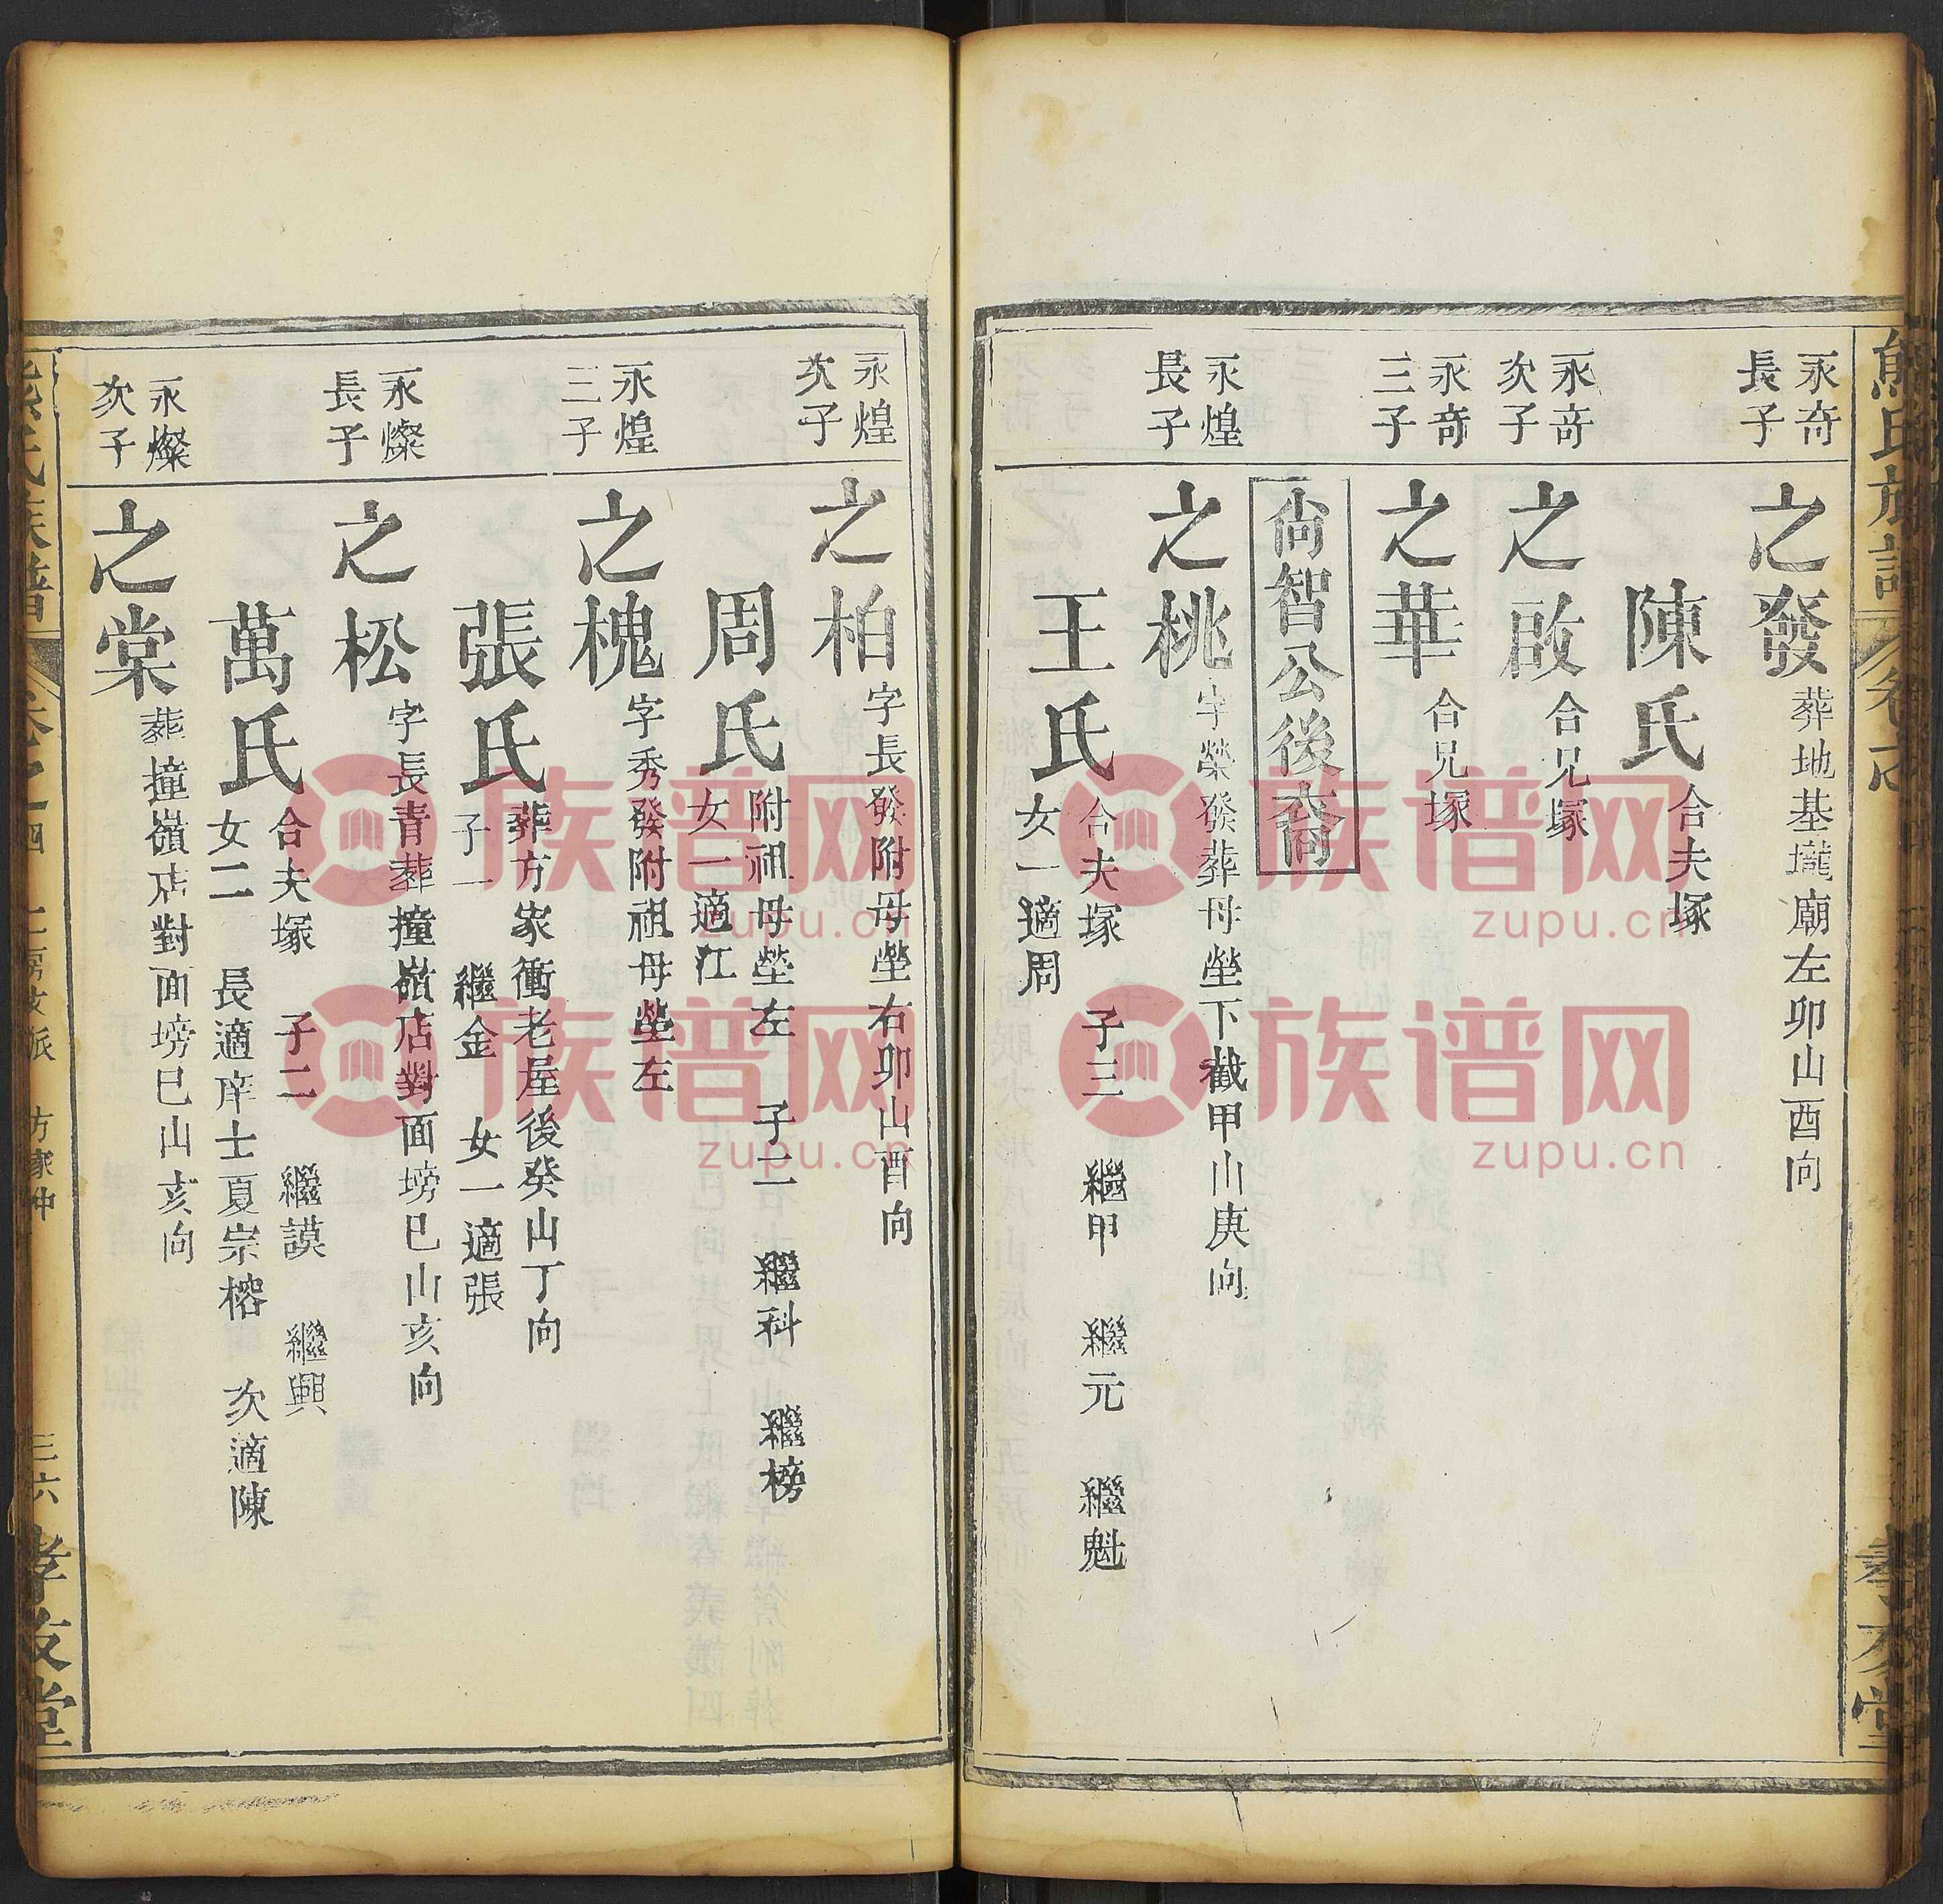 永奇
長子
之發
葬地基壠廟左卯山酉向
陳氏
合夫塚
永奇
次子
之啟
合兄塚
永奇
三子
之華
合兄塚
尚智公後裔
永煌
長子
之桃
字榮發葬母塋下截甲山庚向
王氏
合夫塚 子三 繼甲 繼元 繼魁
女一適周
永煌
次子
之柏
字長發附母塋右卯山酉向
周氏
附祖母塋左 子二 繼科 繼榜
女一適江
永煌
三子
之槐
字秀發附祖母塋左
張氏
葬方家衝老屋後癸山丁向
子一 繼金 女一適張
永燦
長子
之松
字長青葬撞嶺店對面塝巳山亥向
萬氏
合夫塚 子二 繼謨 繼興
女二 長適庠士夏宗榕 次適陳
永燦
次子
之棠
葬撞嶺店對面塝巳山亥向
熊氏族譜
卷之四
三六
孝友堂
族谱网
zupu.cn
族谱网
zupu.cn
族谱网
zupu.cn
族谱网
zupu.cn